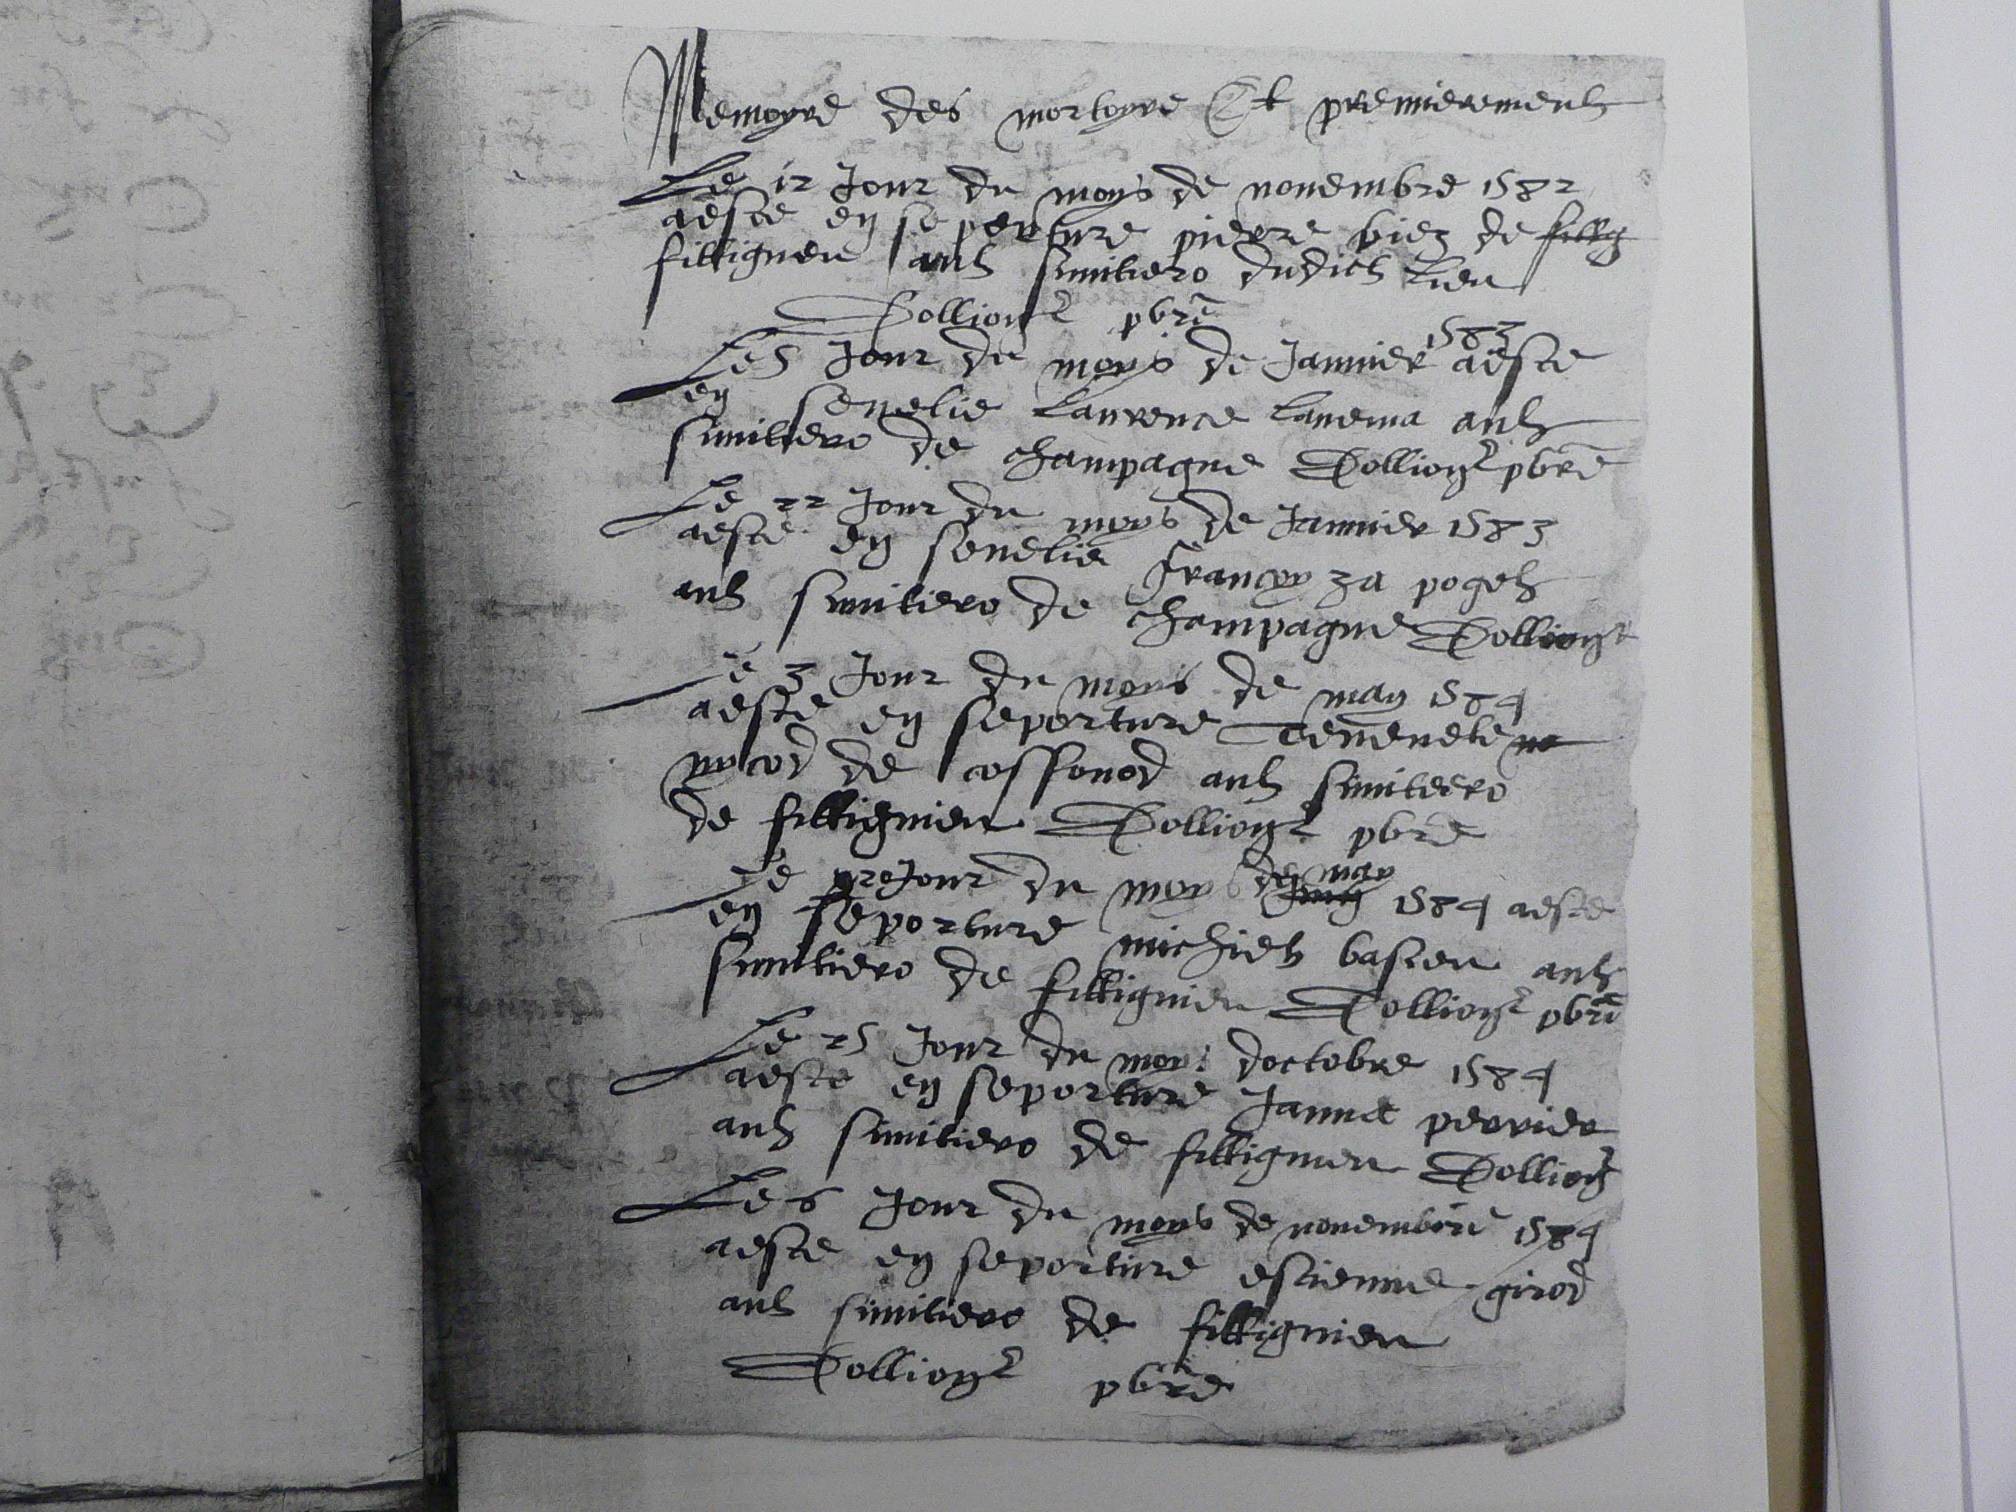 Memoyre des mortoyre Et premierement
Le 12 Jour du moys de novembre 1582
aeste en seperture pierre biez de fillig
filligneu aul simitiero dudich lieu
Dollion pbre
1583
Le 5 Jour de moys de Januier aeste
en sevelie Laurence Lanema aul
simitiero de champagne Dollion pbre
Le 22 Jour du moys de Januier 1583
aeste en sevelie françoy za pogeh
aul simitiero de champagne Dollion
Le 3 Jour du moys de may 1584
aeste en seporture
de cossonod aul simitiero
de fillignieu Dollion pbre
Le Jour du moys de may 1584 aeste
en seporture michiel basteu aul
simitiero de fillignieu Dollion pbre
Le 25 Jour du moys doctobre 1584
aeste en seporture Janna perrier
aul simitiero de fillignieu Dollion
Le 6 Jour du moys de novembre 1584
aeste en seporture estienne girod
aul simitiero de fillignieu
Dollion pbre